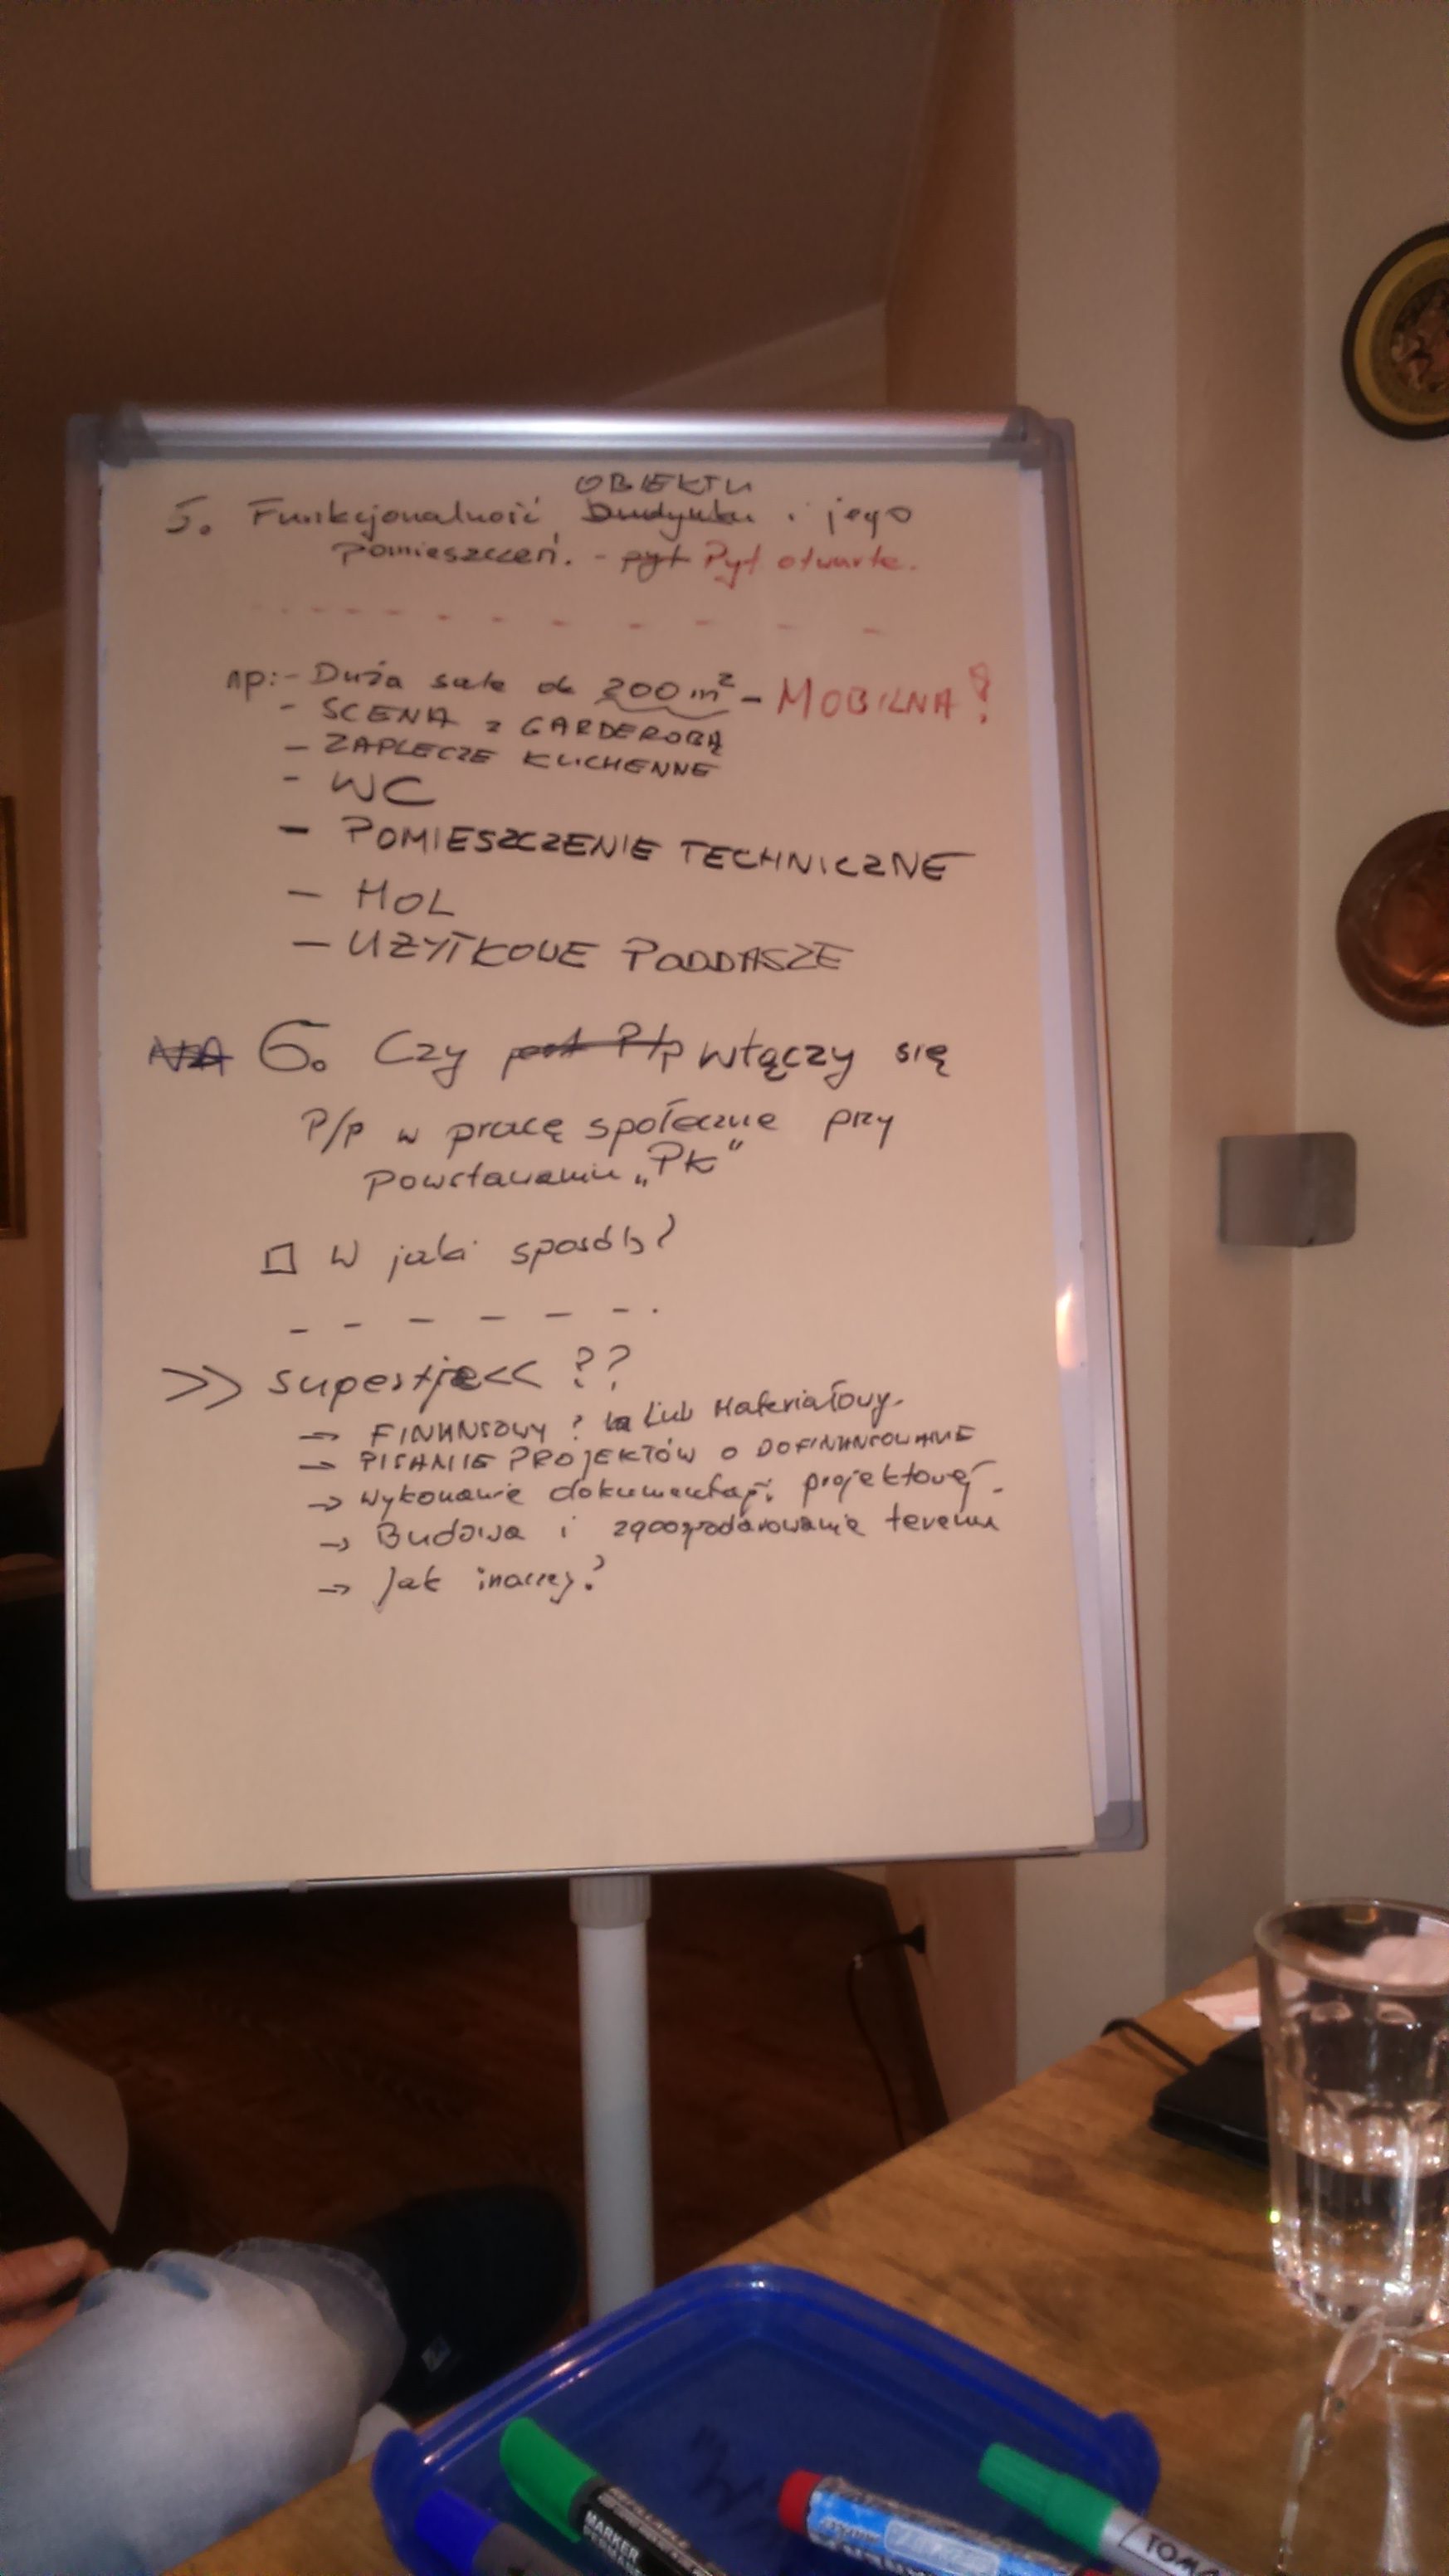 OBIEKTU
5. Funkcjonalność budynku i jego
pomieszczeń. - pyt Pyt otwarte.
- - - - - - - - - -
np:- Duża sala do 200 m² - MOBILNA!
- SCENA z GARDEROBĄ
- ZAPLECZE KUCHENNE
- WC
- POMIESZCZENIE TECHNICZNE
- HOL
- UŻYTKOWE PODDASZE
NA 6. Czy jest P/p włączy się
P/p w pracę społeczne przy
powstawaniu „PK"
□ W jaki sposób?
- - - - - - .
>> sugestje << ??
→ FINANSOWY ? lub Materiałowy.
→ PISANIE PROJEKTÓW O DOFINANSOWANIE
→ Wykonanie dokumentacji projektowej -
→ Budowa i zagospodarowanie terenu
→ Jak inaczej?
MARKER
TOMA